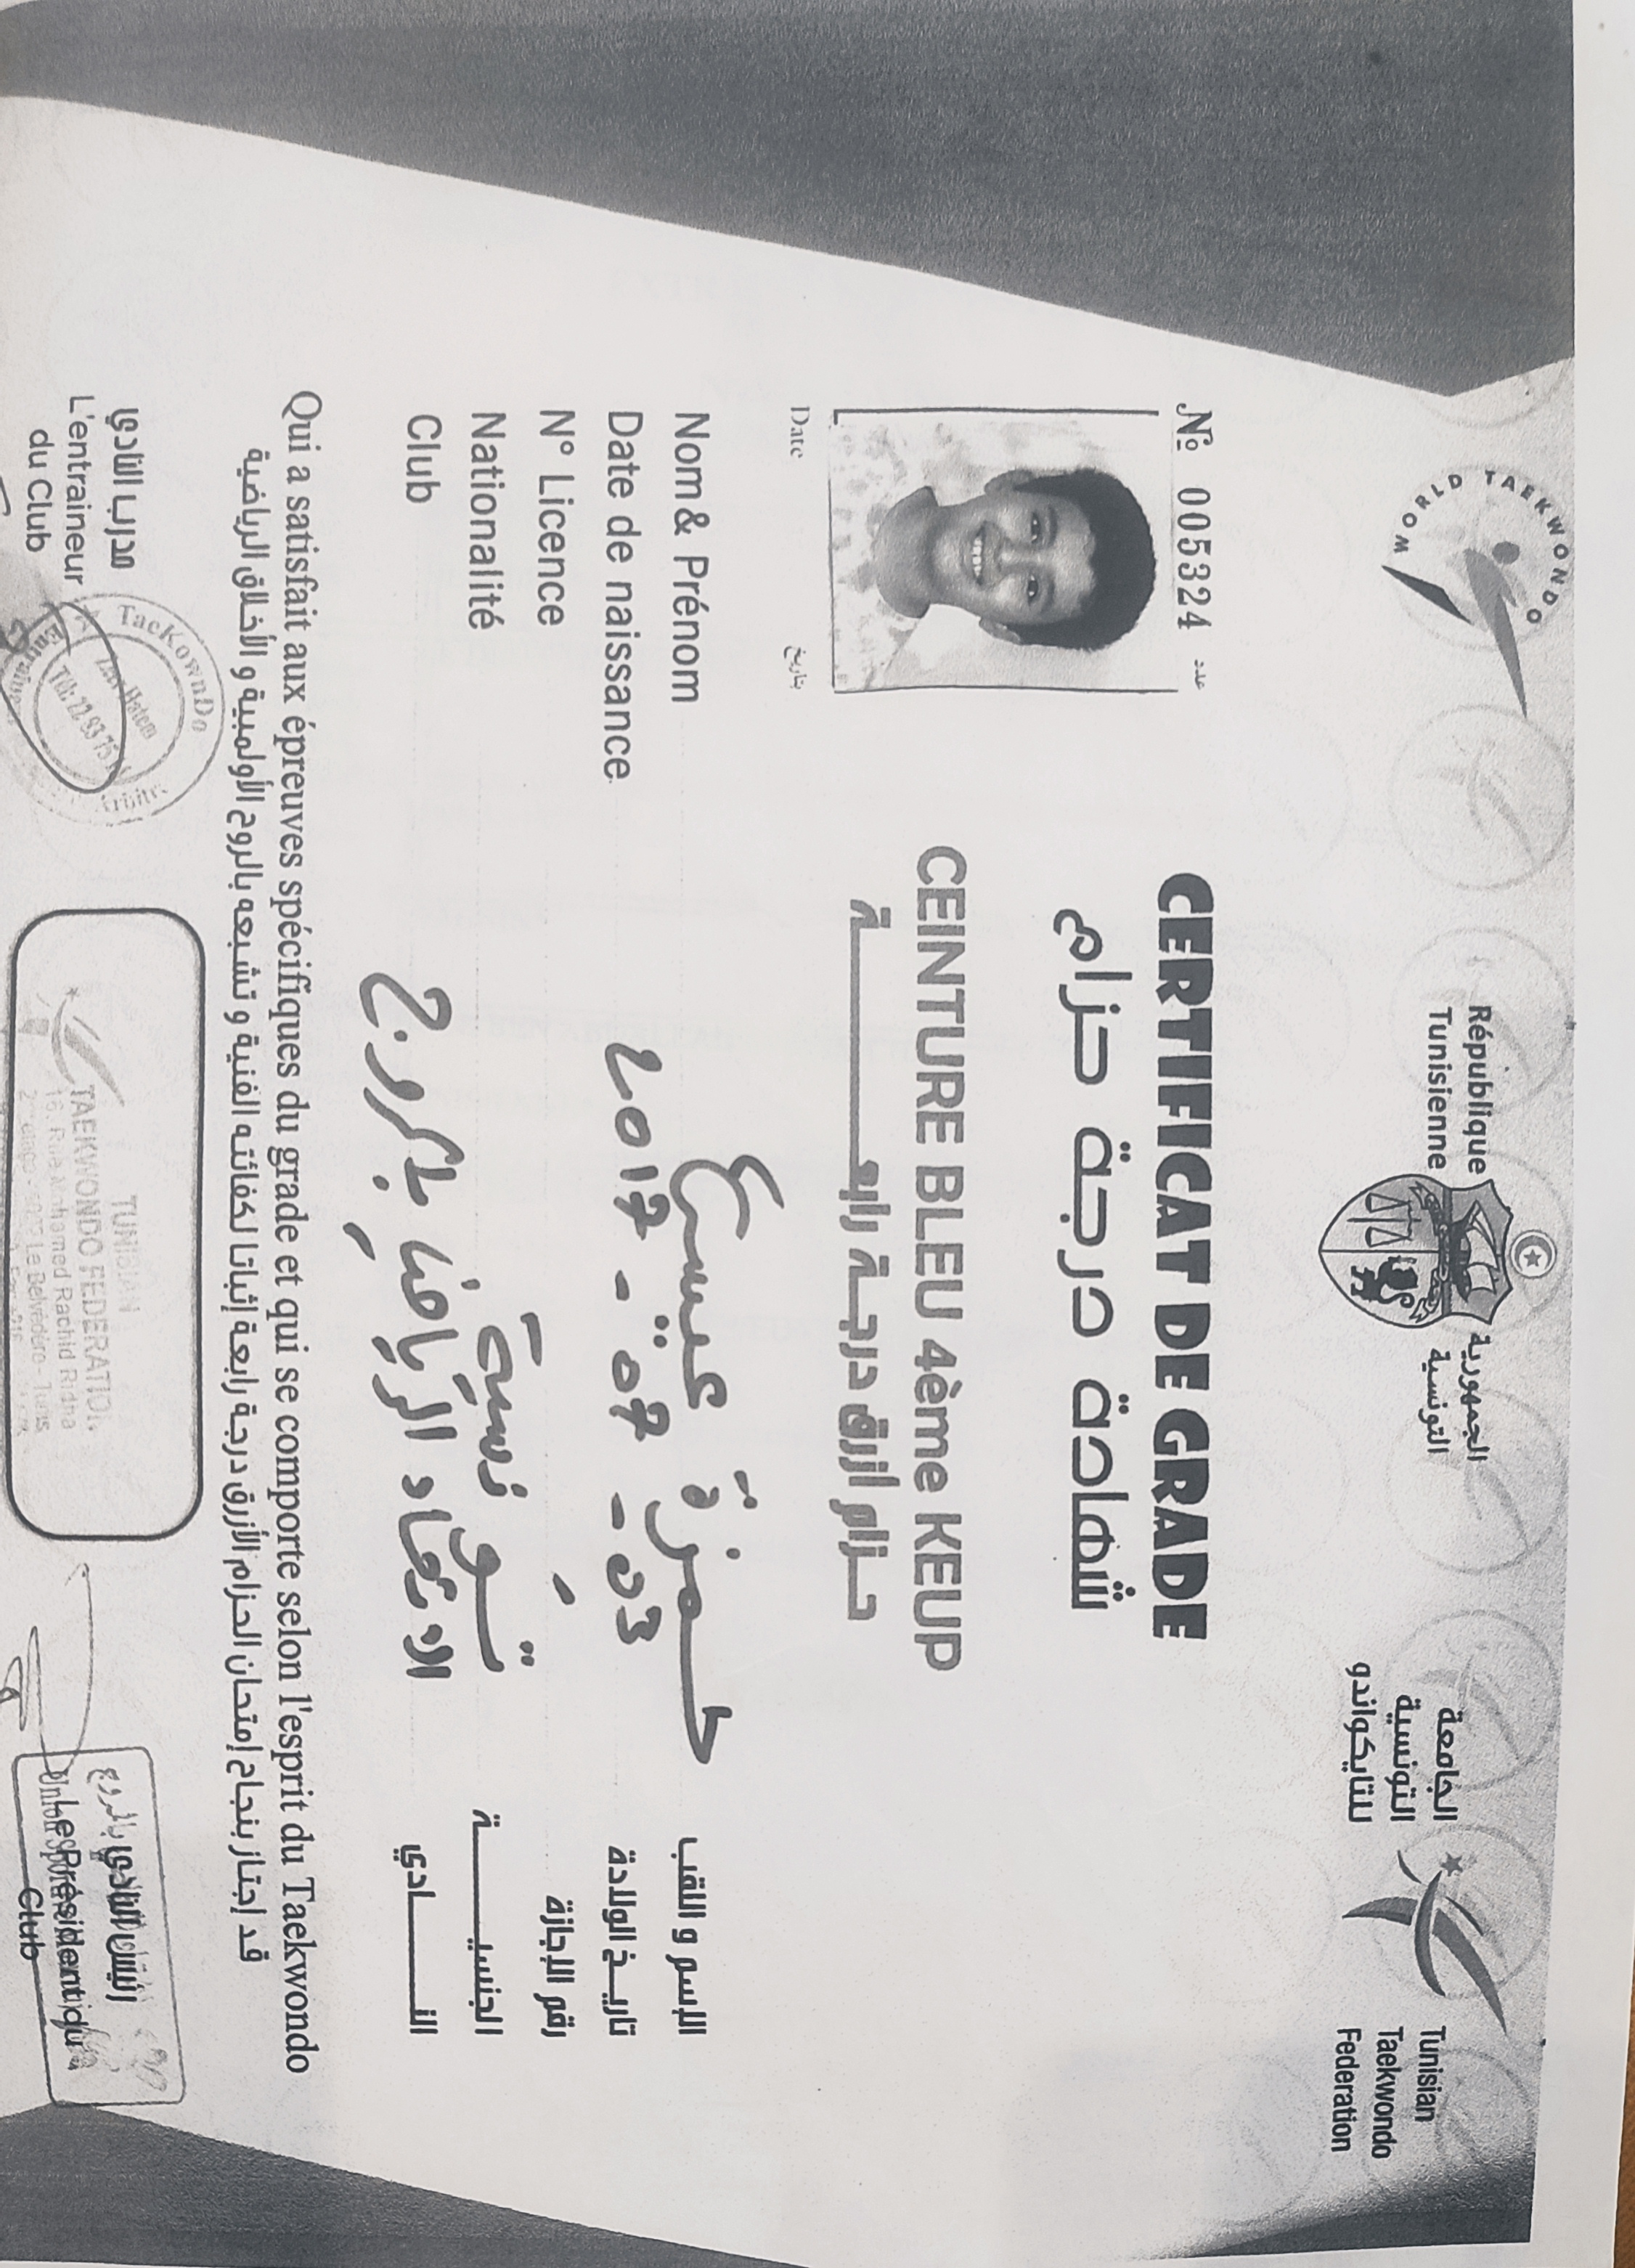 WORLD TAEKWONDO
République
Tunisienne
الجمهورية
التونسية
الجامعة
التونسية
للتايكواندو
Tunisian
Taekwondo
Federation
№ 005324 عدد
CERTIFICAT DE GRADE
شهادة درجة حزام
CEINTURE BLEU 4ème KEUP
حزام ازرق درجة رابعة
Date بتاريخ
Nom & Prénom حمزة عيسى الإسم و اللقب
Date de naissance تاريخ الولادة
N° Licence رقم الإجازة
Nationalité تونسية الجنسية
Club الرياضي النادي
Qui a satisfait aux épreuves spécifiques du grade et qui se comporte selon l'esprit du Taekwondo
قد إجتاز بنجاح إمتحان الحزام الأزرق درجة رابعة إثباتا لكفائته الفنية و تشبعه بالروح الأولمبية و الأخلاق الرياضية
مدرب النادي
L'entraineur
du Club
TaeKownDo
Hatem
Arbitre
TUNISIAN
TAEKWONDO FEDERATION
16, Rue Mohamed Rachid Ridha
Le Belvédère - Tunis
رئيس النادي
Le Président du
Club